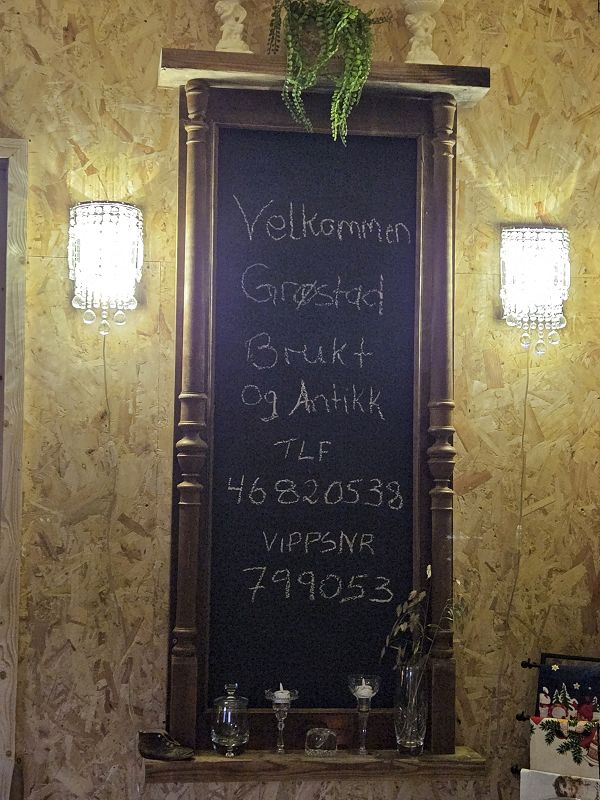 Velkommen
Grøstad
Brukt
og Antikk
TLF
46820538
VIPPSNR
799053